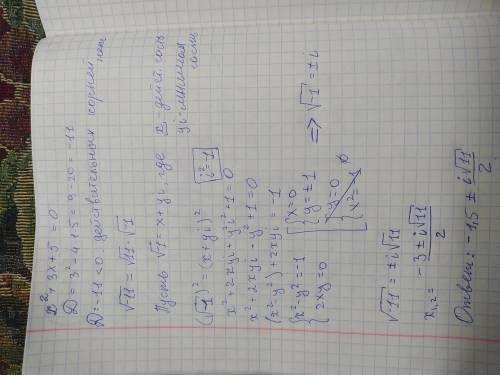 x² + 3x + 5 = 0
D = 3² - 4·1·5 = 9 - 20 = -11
D = -11 < 0 действительных корней нет
√-11 = √11 · √-1
Пусть √-1 = x + yi, где x - дейст. часть
yi - мнимая часть
(√-1)² = (x + yi)² i² = -1
x² + 2xyi + y²i² + 1 = 0
x² + 2xyi - y² + 1 = 0
(x² - y²) + 2xyi = -1
{x² - y² = -1 [{x = 0
{2xy = 0 {y = ±1 => √-1 = ±i
{y = 0
{x² = -1 ∅
√-11 = ±i√11
x₁,₂ = (-3 ± i√11)/2
Ответ: -1,5 ± i√11/2